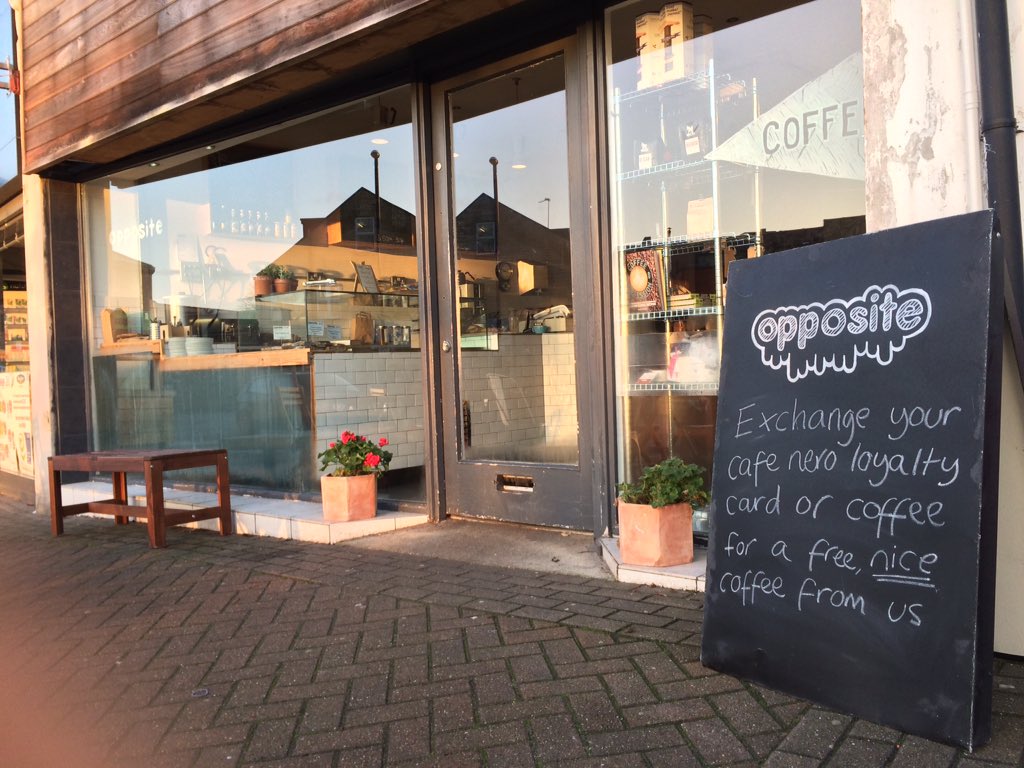 opposite
COFFE
opposite
Exchange your
cafe nero loyalty
card or coffee
for a free, nice
coffee from us